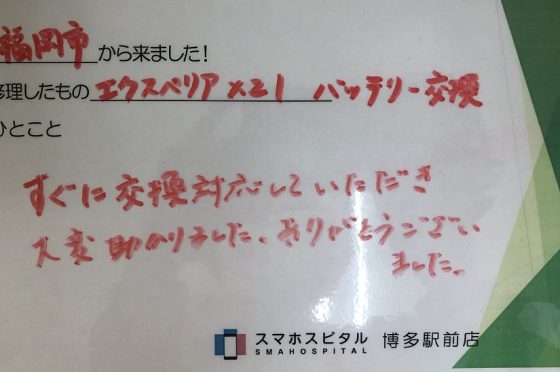 福岡市から来ました!
修理したもの エクスペリア XZ1 バッテリー交換
ひとこと
すぐに交換対応していただき
大変助かりました。ありがとうござい
ました。
スマホスピタル 博多駅前店
SMAHOSPITAL